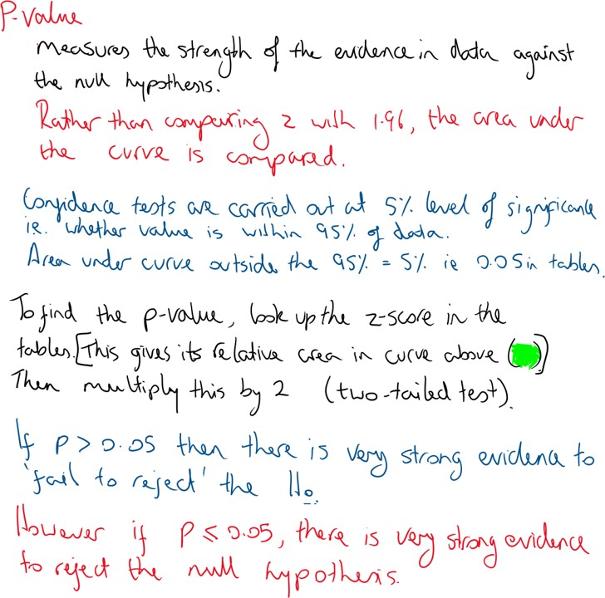 P-value
measures the strength of the evidence in data against
the null hypothesis.
Rather than comparing z with 1.96, the area under
the curve is compared.
Confidence tests are carried out at 5% level of significance
ie. whether value is within 95% of data.
Area under curve outside the 95% = 5% ie 0.05 in tables.
To find the p-value, look up the z-score in the
tables. [This gives its relative area in curve above ( )]
Then multiply this by 2 (two-tailed test).
If P > 0.05 then there is very strong evidence to
'fail to reject' the H₀.
However if P ≤ 0.05, there is very strong evidence
to reject the null hypothesis.